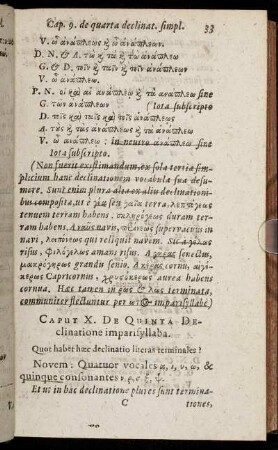 Cap. 9. de quarta declinat. simpl. 33
V. ὦ ἀνάπλεως ἢ ὦ ἀνάπλεων.
D. N. & A. τὼ ἢ τὰ ἢ τὼ ἀνάπλεω
G. & D. τοῖν ἢ ταῖν ἢ τοῖν ἀνάπλεων
V. ὦ ἀνάπλεω.
P. N. οἱ καὶ αἱ ἀνάπλεῳ ἢ τὰ ἀνάπλεω sine
G. των ἀνάπλεων (Iota subscripto
D. τοῖς ἢ ταῖς ἢ τοῖς ἀνάπλεῳς
A. τοὺς ἢ τὰς ἀνάπλεως ἢ τὰ ἀνάπλεω
V. ὦ ἀνάπλεῳ : in neutro ἀνάπλεω sine
Iota subscripto.
(Non fuerit existimandum, ex sola tertia sim-
plicium hanc declinationem vocabula sua desu-
mere. Sunt enim plura alia ex aliis declinationi-
bus composita, ut à terra, λεπτόγεως
tenuem terram habens, σκληρόγεως duram ter-
ram habens. A ναῦς navis, supervacuus in
navi, λιπόνεως qui reliquit navem. Sic à γέλως
risus, φιλόγελως amans risus. A γῆρας senectus,
μακρόγηρως grandis senio. A κέρας cornu, αἰγό-
κερως Capricornus, χρυσόκερως aurea habens
cornua. Hæc tamen in ρως & λως terminata,
communiter flectuntur per ωτος imparisyllabè)
CAPUT X. DE QUINTA DE-
clinatione imparisyllaba.
Quot habet hæc declinatio literas terminales ?
Novem : Quatuor vocales α, ι, υ, ω, &
quinque consonantes ν, ρ, ς, ξ, ψ.
Et ut in hac declinatione plures sunt termina-
C tiones,